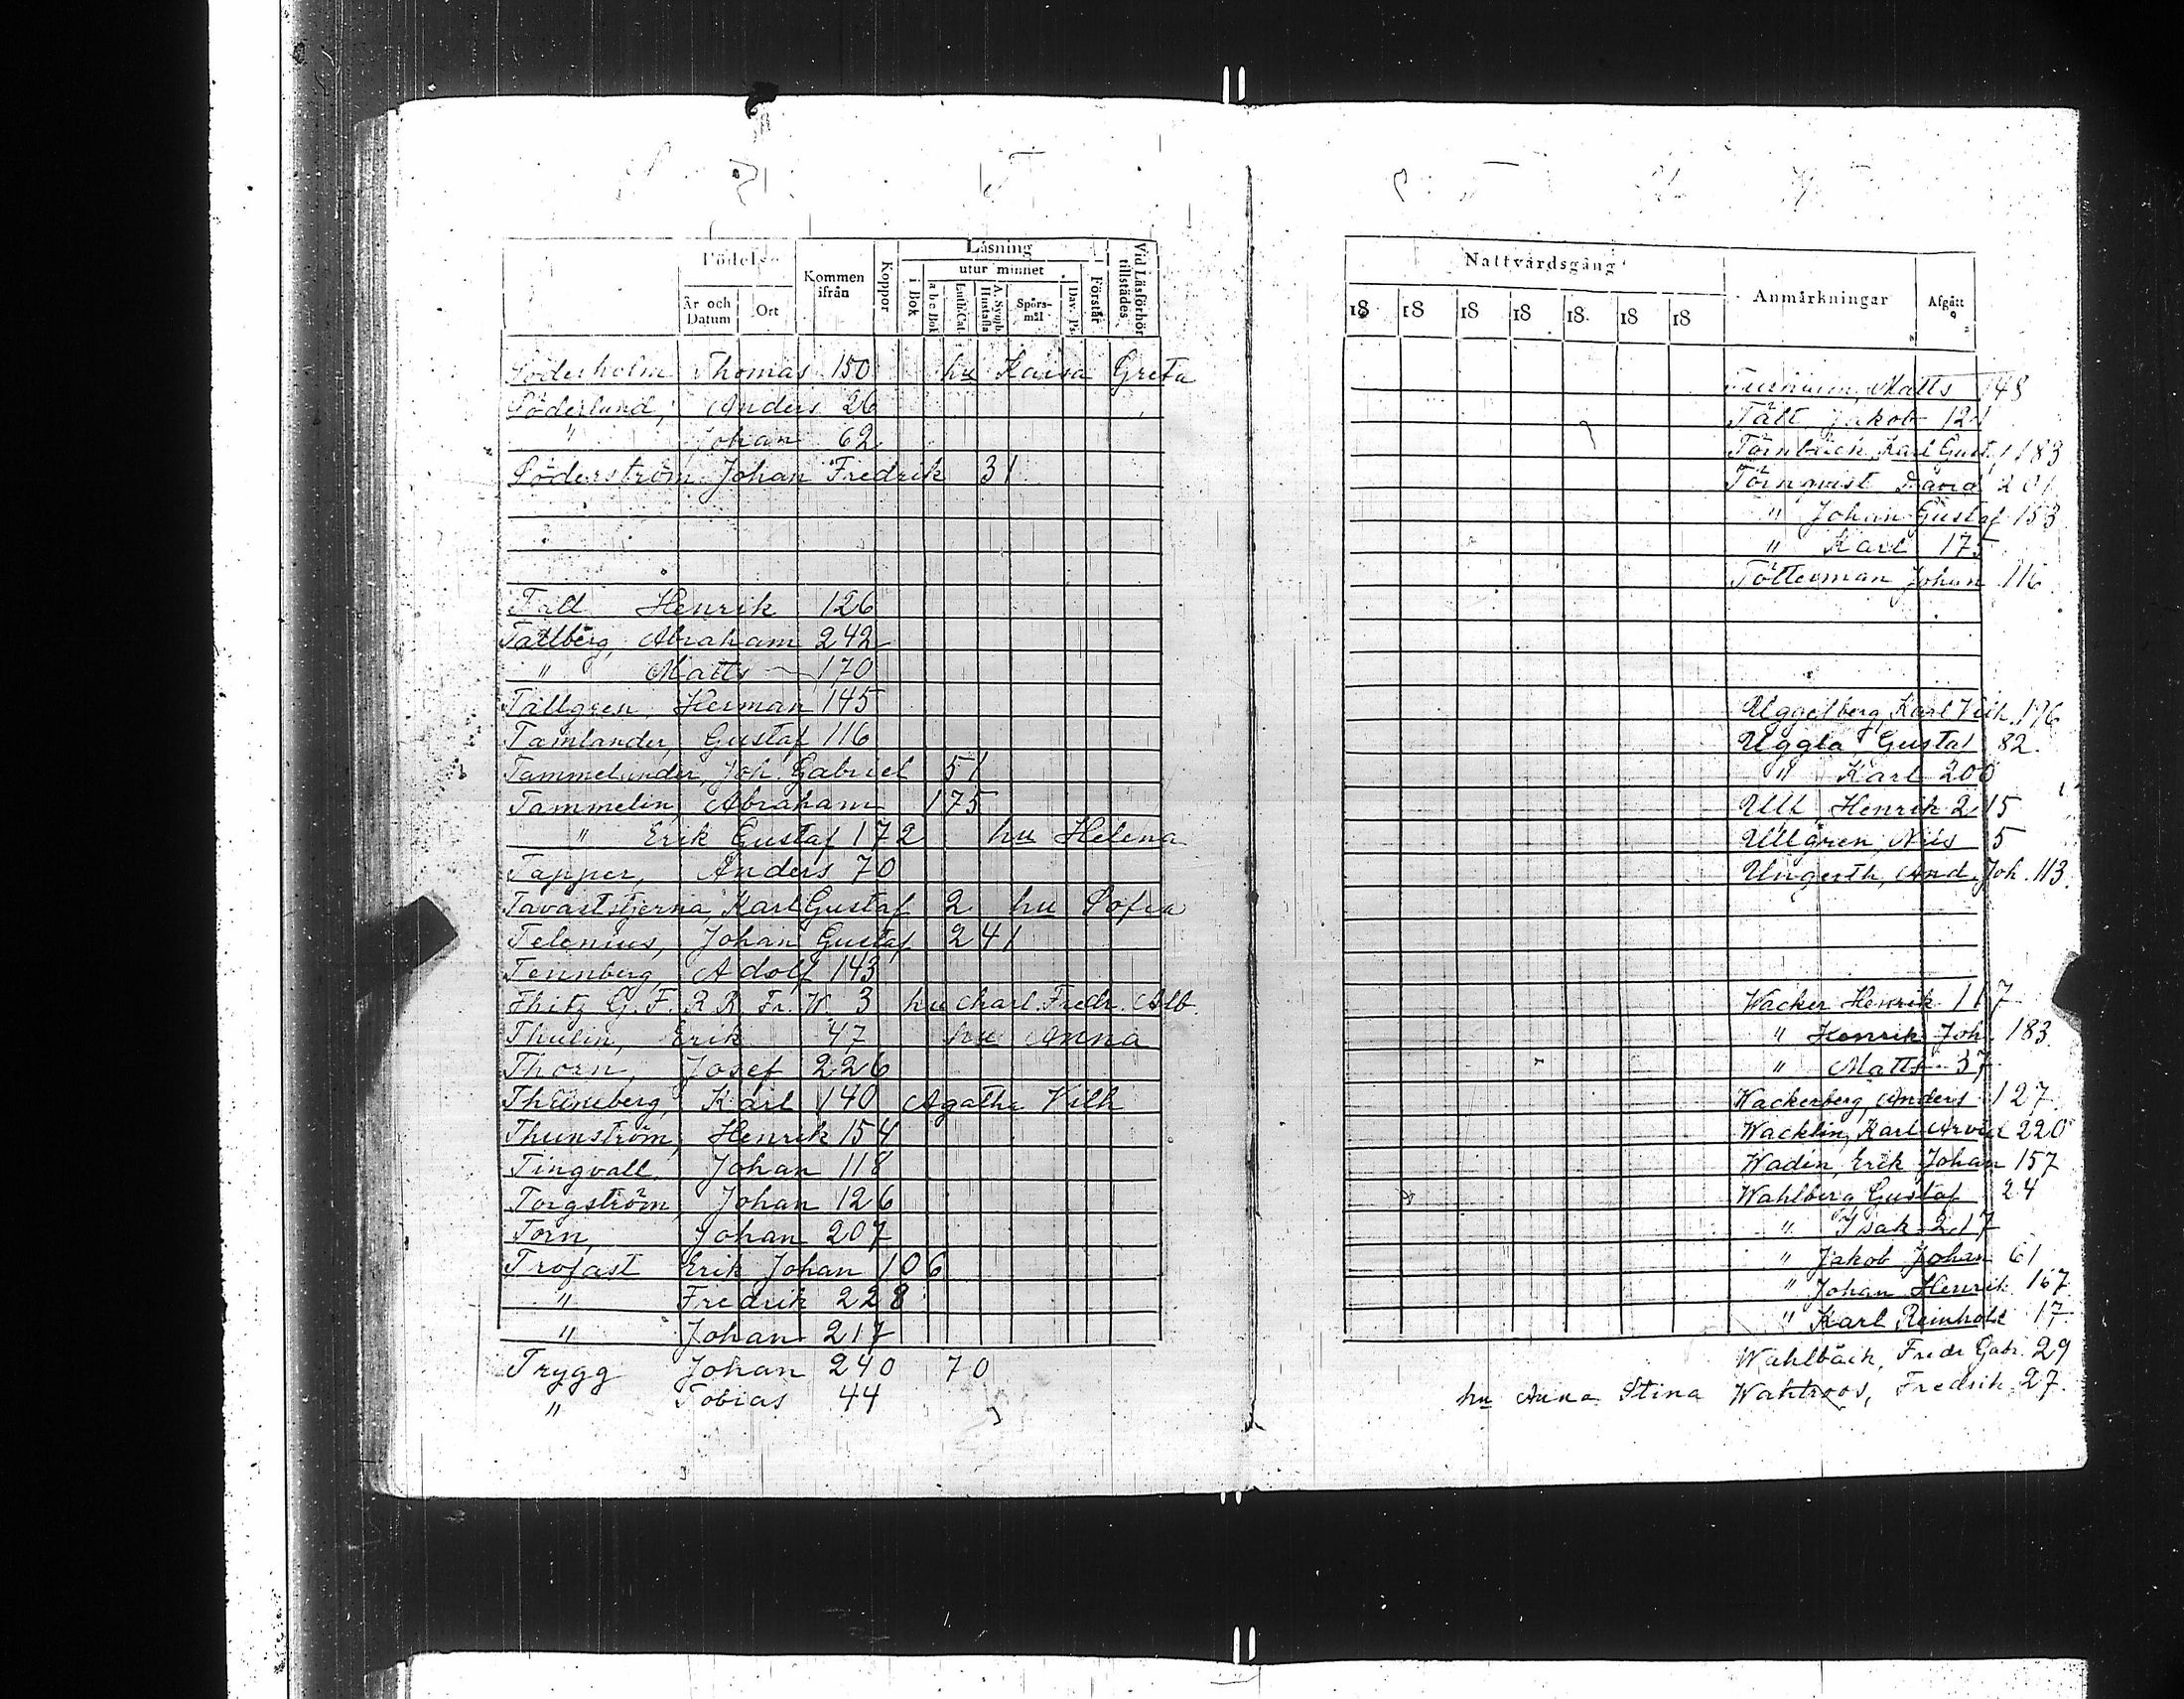 Födelse
Kommen ifrån
Koppor
Läsning
utur minnet
i Bok
a b c Bok
Luth. Cat.
A. Symb. Hustafla
Spörs-mål
Dav. Ps.
Förstår
Vid Läsförhör tillstädes
År och Datum
Ort
Söderholm Thomas 150 hu Kaisa Greta
Söderlund, Anders 26
" Johan 62
Söderström Johan Fredrik 31
Tall Henrik 126
Tallberg, Abraham 242
" Matts 170
Tallgren, Herman 145
Tamlander, Gustaf 116
Tammelander, Joh. Gabriel 51
Tammelin, Abraham 175
" Erik Gustaf 172 hu Helena
Tapper, Anders 70
Tavaststjerna, Karl Gustaf 2 hu Sofia
Telenius, Johan Gustaf 241
Tennberg, Adolf 143
Thitz G. F. R. R. Fr. W. 3 hu Charl. Fredr. Alb.
Thulin, Erik 47 hu Anna
Thorn, Josef 226
Thuneberg, Karl 140 Agatha Vilh
Thunström, Henrik 154
Tingvall, Johan 118
Torgström, Johan 126
Torn, Johan 207
Trofast Erik Johan 106
" Fredrik 228
" Johan 217
Trygg Johan 240 70
" Tobias 44
Nattvardsgång
Anmärkningar
Afgått
18 18 18 18 18 18 18
Matts 148
Tält, Jakob 121
Törnbäck, Karl Gust. 183
Törnqvist David 201
" Johan Gustaf 153
" Karl 175
Tötterman Johan 116
Uggelberg, Karl Vilh. 176
Uggla Gustaf 82
" Karl 200
Ull Henrik 215
Ullgren, Nils 5
Ungerth, And. Joh. 113
Wacker Henrik 117
" Henrik Joh. 183
" Matts 37
Wackerberg, Anders 127
Wacklin, Karl Arvid 220
Wadén, Erik Johan 157
Wahlberg Gustaf 24
" Isak 217
" Jakob Johan 61
" Johan Henrik 167
" Karl Reinhold 17
Wahlbäck, Fredr Gabr. 29
hu Anna Stina Wahlroos, Fredrik 27.